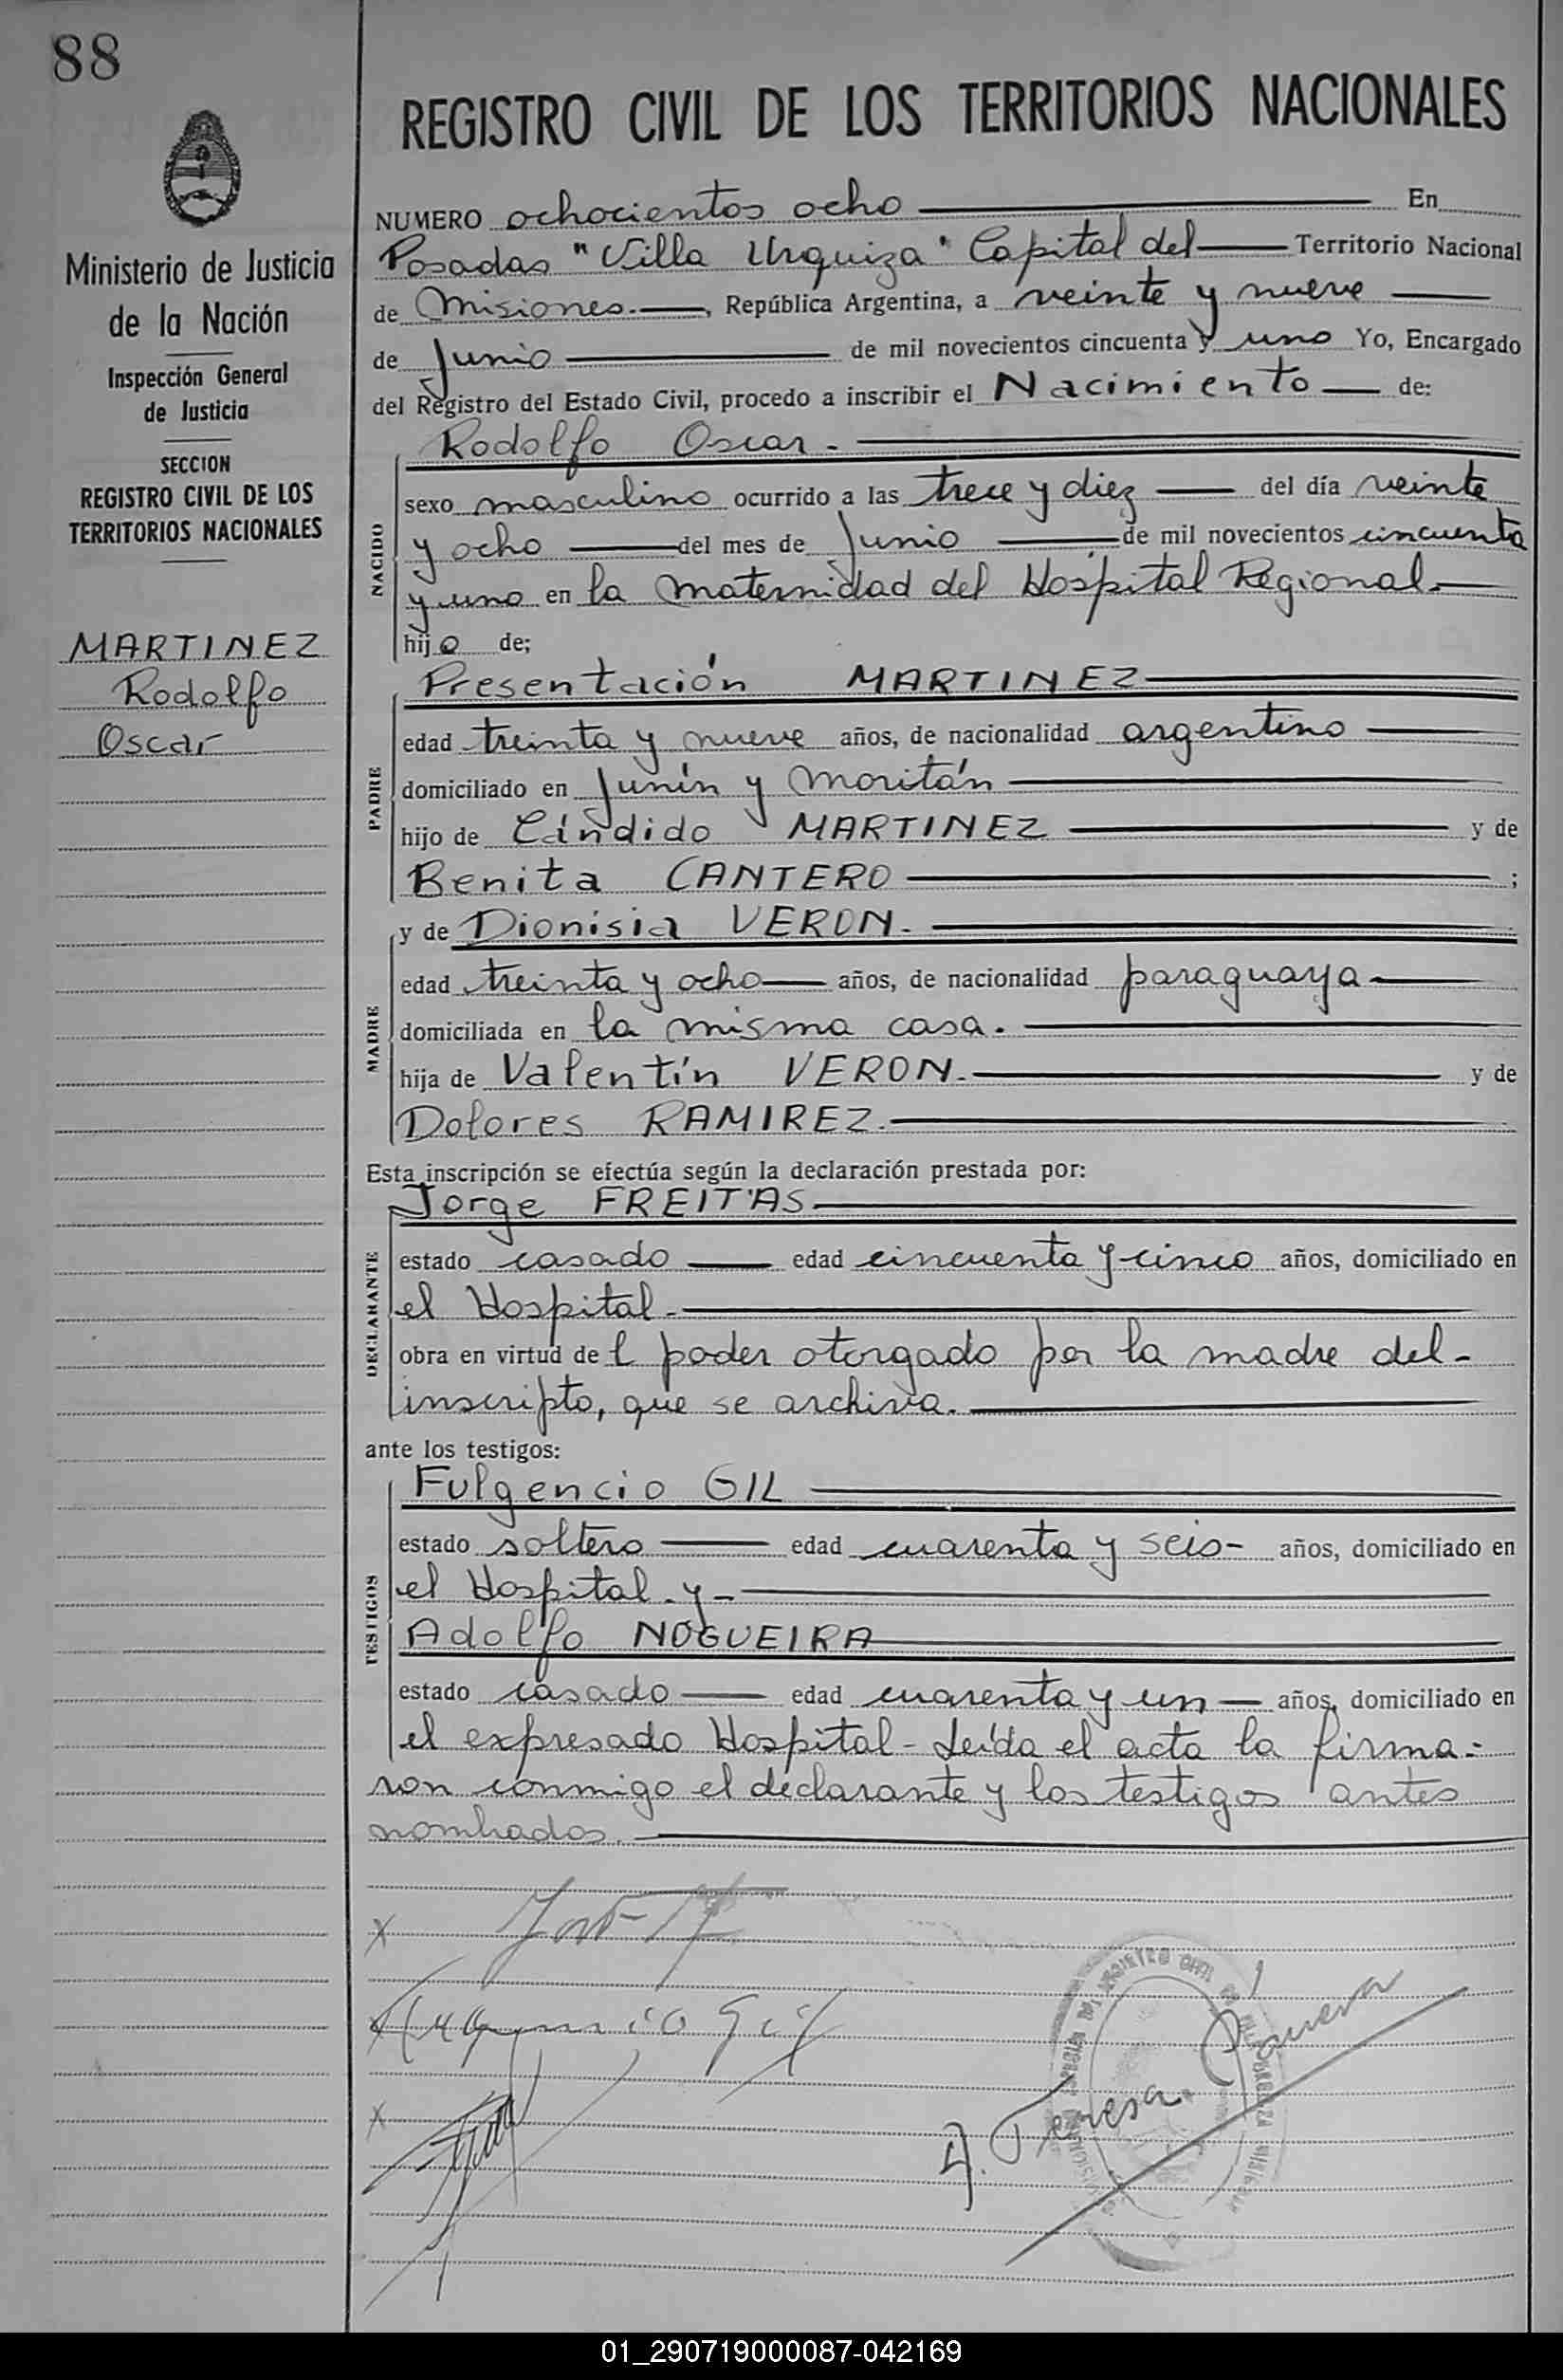 88
REGISTRO CIVIL DE LOS TERRITORIOS NACIONALES
Ministerio de Justicia
de la Nación
Inspección General
de Justicia
SECCION
REGISTRO CIVIL DE LOS
TERRITORIOS NACIONALES
MARTINEZ
Rodolfo
Oscar
NUMERO ochocientos ocho En
Posadas "Villa Urquiza" Capital del Territorio Nacional
de Misiones.—, República Argentina, a veinte y nueve
de Junio de mil novecientos cincuenta y uno Yo, Encargado
del Registro del Estado Civil, procedo a inscribir el Nacimiento de:
NACIDO
Rodolfo Oscar.-
sexo masculino ocurrido a las trece y diez del día veinte
y ocho del mes de Junio de mil novecientos cincuenta
y uno en la maternidad del Hospital Regional.-
hijo de;
PADRE
Presentación MARTINEZ
edad treinta y nueve años, de nacionalidad argentino
domiciliado en Junín y Moritán
hijo de Cándido MARTINEZ y de
Benita CANTERO ;
MADRE
y de Dionisia VERON.-
edad treinta y ocho años, de nacionalidad paraguaya
domiciliada en la misma casa.
hija de Valentín VERON.- y de
Dolores RAMIREZ.-
Esta inscripción se efectúa según la declaración prestada por:
DECLARANTE
Jorge FREITAS
estado casado edad cincuenta y cinco años, domiciliado en
el Hospital.-
obra en virtud del poder otorgado por la madre del-
inscripto, que se archiva.
ante los testigos:
TESTIGOS
Fulgencio GIL
estado soltero edad cuarenta y seis- años, domiciliado en
el Hospital y-
Adolfo NOGUEIRA
estado casado edad cuarenta y un años, domiciliado en
el expresado Hospital - Leída el acta la firma-
ron conmigo el declarante y los testigos antes
nombados.
x
Fulgencio Gil
x
A. Teresa
01_290719000087-042169